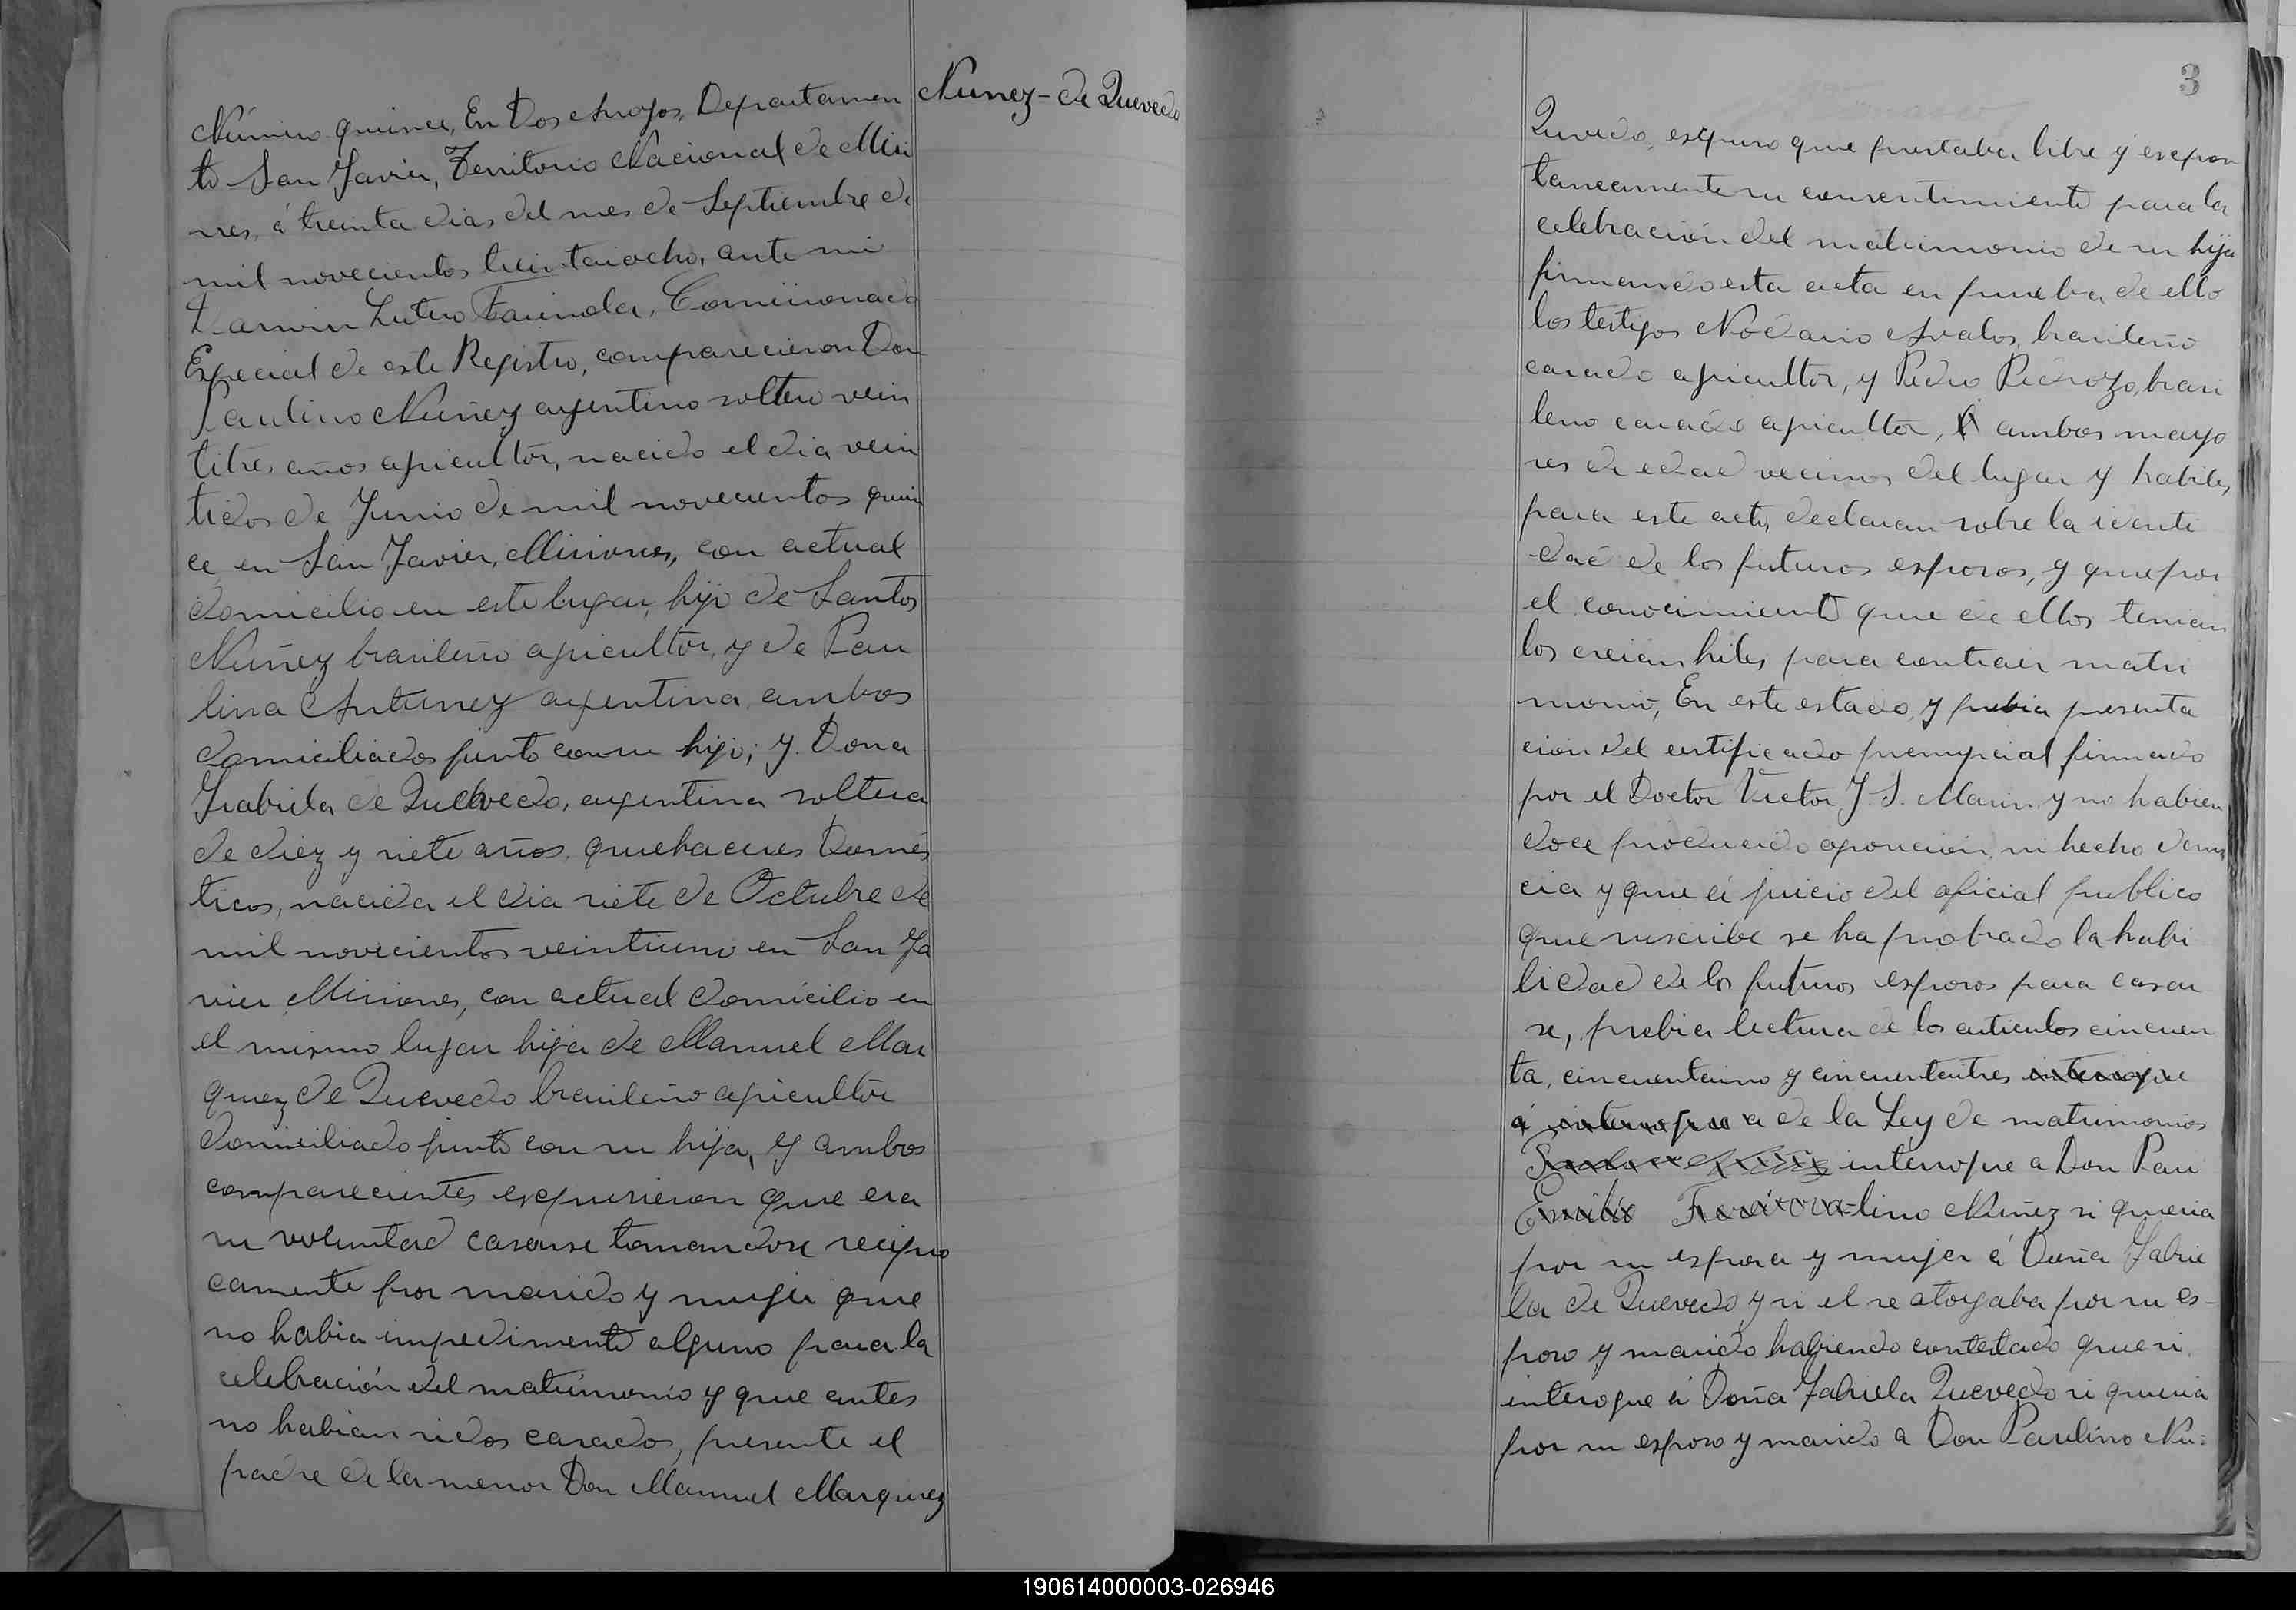 Número quince, En Dos Arroyos, Departamen
to San Javier, Territorio Nacional de Misi
nes, á treinta dias del mes de Septiembre de
mil novecientos treintaiocho, ante mi
Darwin Lutero Farinola, Comisionado
Especial de este Registro, comparecieron Don
Paulino Nuñez argentino soltero vein
titres años agricultor, nacido el dia vein
tidos de Junio de mil novecientos quin
ce en San Javier, Misiones, con actual
domicilio en este lugar, hijo de Santos
Nuñez brasileño agricultor, y de Pau
lina Antunez argentina, ambos
domiciliados junto con su hijo; y Dona
Grabiela de Quevedo, argentina soltera
de diez y siete años, quehaceres Domés
ticos, nacida el dia siete de Octubre de
mil novecientos veintiuno en San Ja
vier Misiones, con actual domicilio en
el mismo lugar hija de Manuel Mar
quez de Quevedo brasileño agricultor
domiciliado junto con su hija, y ambos
comparecientes expusieron que era
su voluntad casarse tomandose recipro
camente por marido y mujer que
no habia impedimento alguno para la
celebración del matrimonio y que antes
no habian sidos casados, presente el
padre de la menor Don Manuel Marquez
Nunez - de Quevedo
3
Quevedo, expuso que prestaba libre y expon
taneamente su consentimiento para la
celebración del matrimonio de su hija
firmando esta acta en prueba de ello
los testigos Nodario Avalos, brasileño
casado agricultor, y Pedro Pedrozo, brasi
leno casado agricultor, ambos mayo
res de edad vecinos del lugar y habiles
para este acto, declaran sobre la identi
dad de los futuros esposos, y que por
el conocimiento que de ellos tenian
los creian hiles para contraer matri
monio, En este estado, y prebia presenta
cion del certificado prenupcial firmado
por el Doctor Victor J. S. Marin y no habien
doce producido oposición, ni hecho denun
cia y que á juicio del oficial publico
que suscribe se ha probado la habi
lidad de los futuros esposos para casar
se, prebia lectura de los articulos cincuen
ta, cincuentaiuno y cincuentaitres interogue
á interogue a de la Ley de matrimonios
interrogue a Don Pau
Emilio lino Nuñez si queria
por su esposa y mujer á Doña Gabrie
la de Quevedo y si el se otorgaba por su es-
poso y marido habiendo contestado que si,
interogue á Doña Gabriela Quevedo si queria
por su esposo y marido a Don Paulino Nu=
190614000003-026946